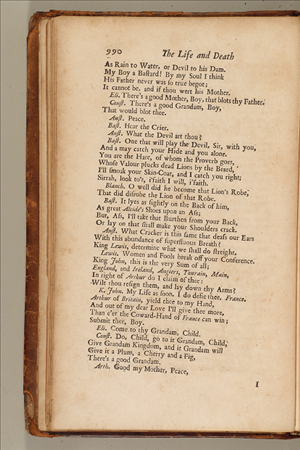 990 The Life and Death
As Rain to Water, or Devil to his Dam.
My Boy a Bastard! By my Soul I think
His Father never was so true begot;
It cannot be, and if thou wert his Mother.
Eli. There's a good Mother, Boy, that blots thy Father.
Const. There's a good Grandam, Boy,
That would blot thee.
Aust. Peace.
Bast. Hear the Crier.
Aust. What the Devil art thou?
Bast. One that will play the Devil, Sir, with you,
And a may catch your Hide and you alone.
You are the Hare, of whom the Proverb goes,
Whose Valour plucks dead Lions by the Beard,
I'll smoak your Skin-Coat, and I catch you right;
Sirrah, look to't, i'faith I will, i'faith.
Blanch. O well did he become that Lion's Robe,
That did disrobe the Lion of that Robe.
Bast. It lyes as sightly on the Back of him,
As great Alcide's Shoes upon an Ass;
But, Ass, I'll take that Burthen from your Back,
Or lay on that shall make your Shoulders crack.
Aust. What Cracker is this same that deafs our Ears
With this abundance of superfluous Breath?
King Lewis, determine what we shall do streight.
Lewis. Women and Fools break off your Conference.
King John, this is the very Sum of all;
England, and Ireland, Angiers, Tourain, Main,
In right of Arthur do I claim of thee:
Wilt thou resign them, and lay down thy Arms?
K. John. My Life as soon. I do defie thee, France.
Arthur of Britain, yield thee to my Hand,
And out of my dear Love I'll give thee more,
Than e'er the Coward-Hand of France can win;
Submit thee, Boy.
Eli. Come to thy Grandam, Child.
Const. Do, Child, go to it Grandam, Child,
Give Grandam Kingdom, and it Grandam will
Give it a Plum, a Cherry and a Fig,
There's a good Grandam.
Arth. Good my Mother, Peace,
I